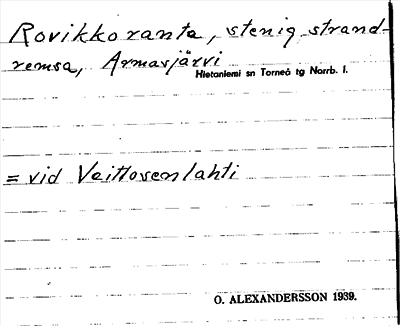 Rovikkoranta, stenig strand-
remsa, Armasjärvi
Hietaniemi sn Torneå tg Norrb. l.
= vid Veittosenlahti
O. ALEXANDERSSON 1939.